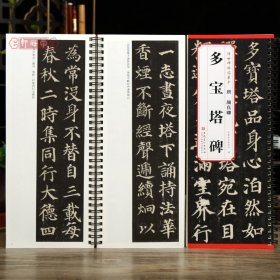 多寶塔品身心
塔宛在目
滿空界行
多宝塔碑
颜真卿
一志晝夜塔下誦持法華
香煙不斷經聲遞續炯以
為常沒身不替自三載每
春秋二時集同行大德四